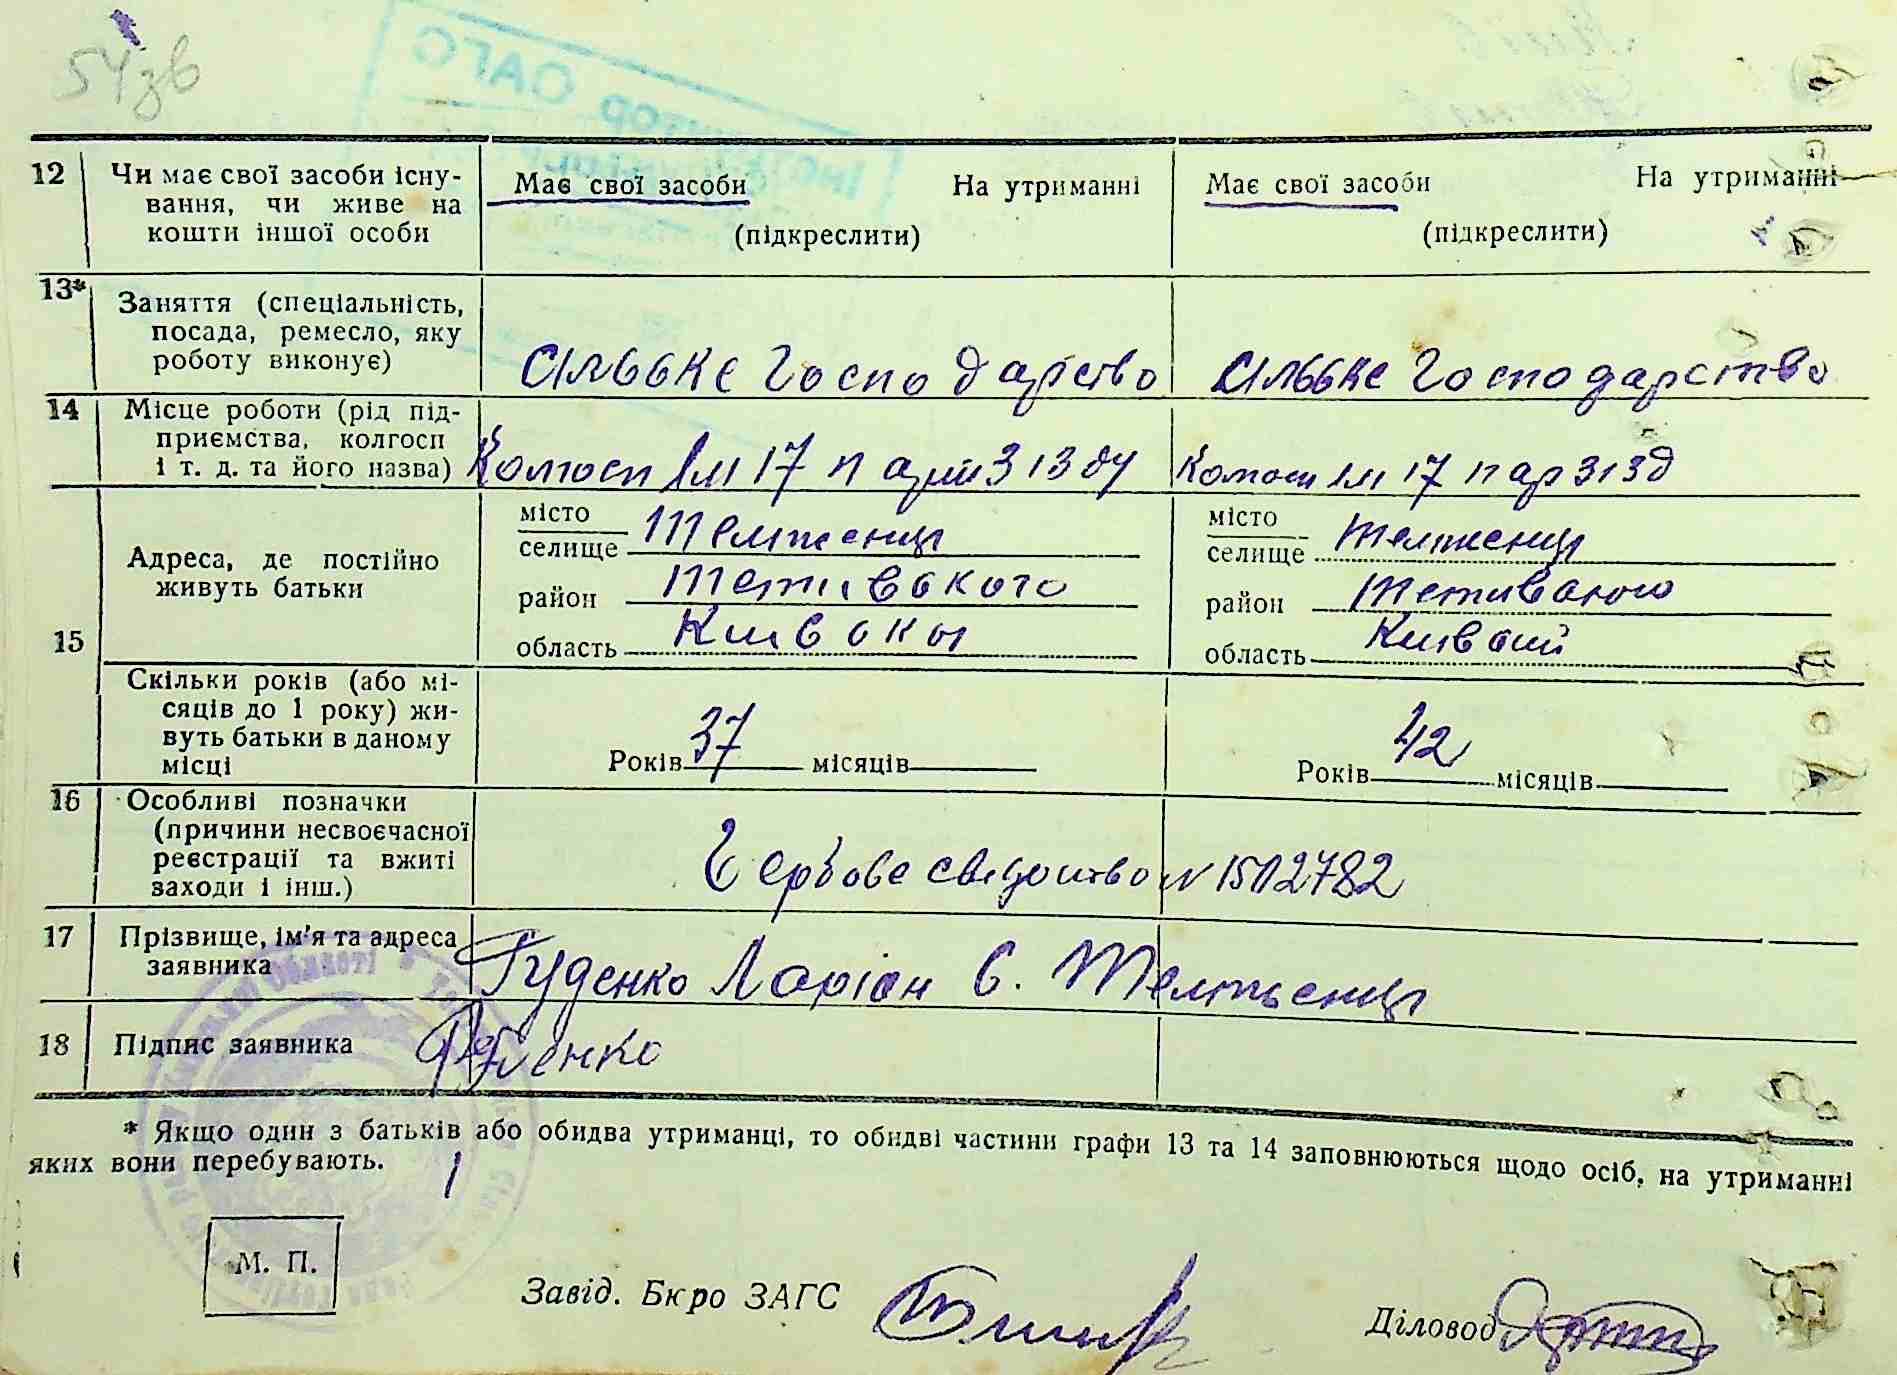 54зв
12 Чи має свої засоби існу-
вання, чи живе на
кошти іншої особи
Має свої засоби На утриманні
(підкреслити)
Має свої засоби На утриманні
(підкреслити)
13* Заняття (спеціальність,
посада, ремесло, яку
роботу виконує)
Сільське Господарство
Сільське Господарство
14 Місце роботи (рід під-
приємства, колгосп
і т. д. та його назва)
Колгосп Ім 17 партзізду
Колгосп Ім 17 парзізд
15 Адреса, де постійно
живуть батьки
місто
селище Тележенці
район Тетивского
область Київскы
місто
селище Тележенці
район Тетивского
область Київскій
Скільки років (або мі-
сяців до 1 року) жи-
вуть батьки в даному
місці
Років 37 місяців
Років 42 місяців
16 Особливі позначки
(причини несвоєчасної
реєстрації та вжиті
заходи і інш.)
Гербове свідоцтво N 1502782
17 Прізвище, ім'я та адреса
заявника
Гуденко Ларіон с. Тележенці
18 Підпис заявника
* Якщо один з батьків або обидва утриманці, то обидві частини графи 13 та 14 заповнюються щодо осіб, на утриманні
яких вони перебувають.
М. П.
Завід. Бюро ЗАГС
Діловод